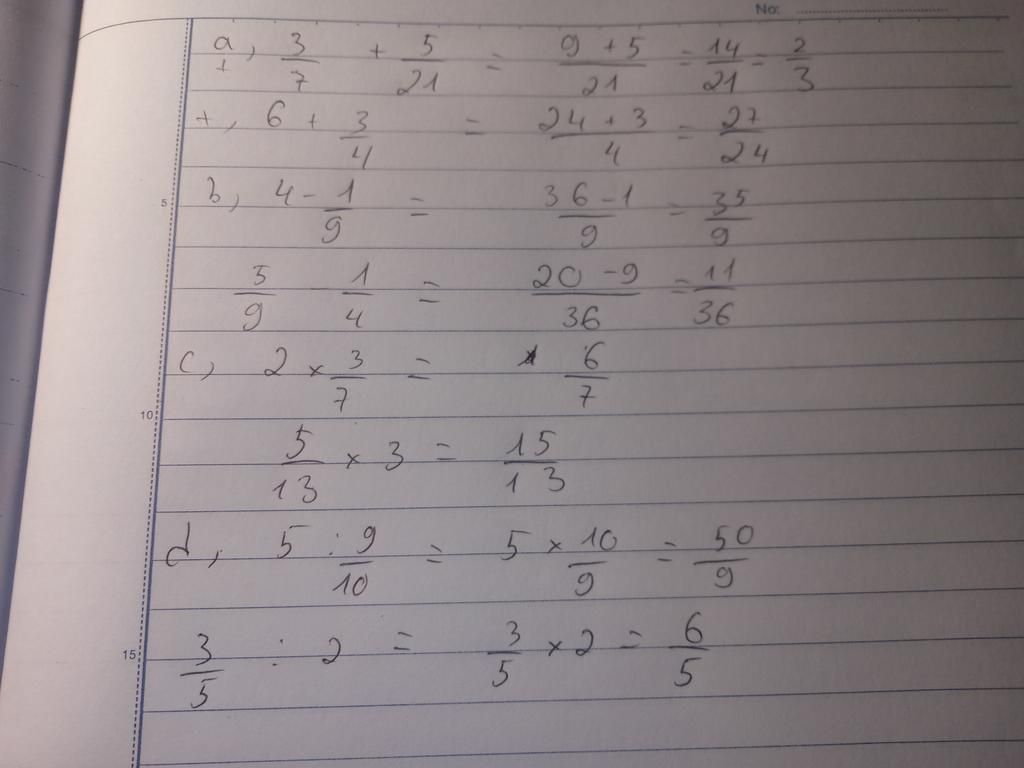 No:
a, 3/7 + 5/21 = (9 + 5)/21 = 14/21 = 2/3
+
+, 6 + 3/4 = (24 + 3)/4 = 27/24
5
b, 4 - 1/9 = (36 - 1)/9 = 35/9
5/9 - 1/4 = (20 - 9)/36 = 11/36
c, 2 × 3/7 = 6/7
10
5/13 × 3 = 15/13
d, 5 : 9/10 = 5 × 10/9 = 50/9
15
3/5 : 2 = 3/5 × 2 = 6/5